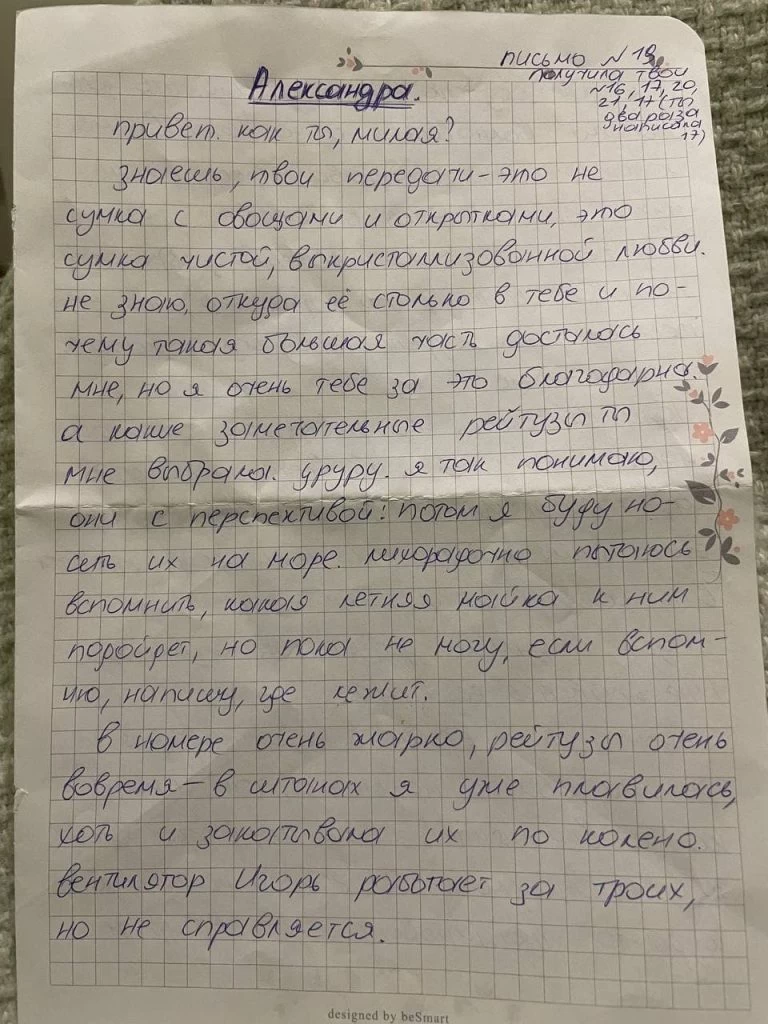 письмо N 19
получила твои
N16, 17, 20,
21, 17 (ты
два раза
написала
17)
Александра.
привет. как ты, милая?
знаешь, твои передачи – это не
сумка с овощами и открытками, это
сумка чистой, выкристаллизованной любви.
не знаю, откуда её столько в тебе и по-
чему такая большая часть досталась
мне, но я очень тебе за это благодарна.
а какие замечательные рейтузы ты
мне выбрала. уруру. я так понимаю,
они с перспективой: потом я буду но-
сить их на море. лихорадочно пытаюсь
вспомнить, какая летняя майка к ним
подойдет, но пока не могу, если вспом-
ню, напишу, где лежит.
в номере очень жарко, рейтузы очень
вовремя – в штанах я уже плавилась,
хоть и закатывала их по колено.
вентилятор Игорь работает за троих,
но не справляется.
designed by beSmart